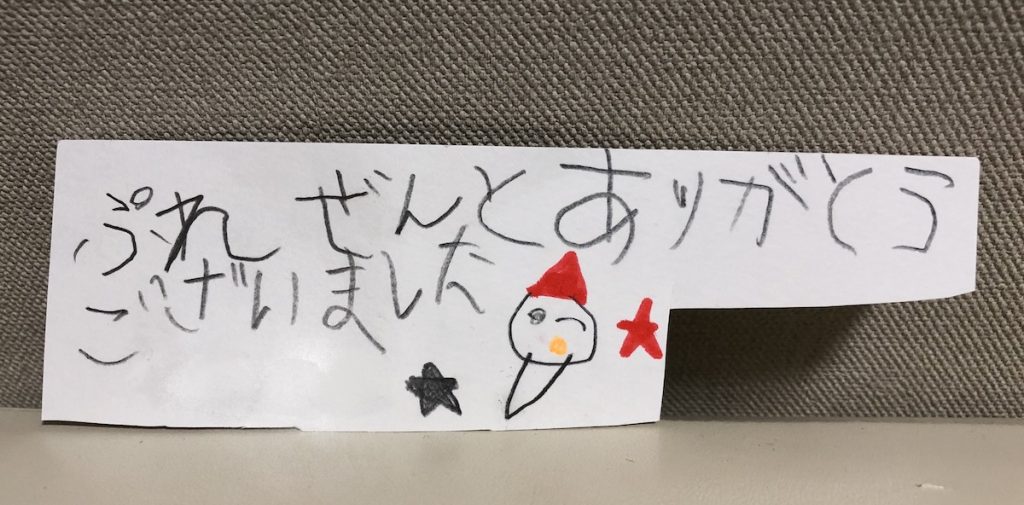 ぷれぜんとありがとう
ございました